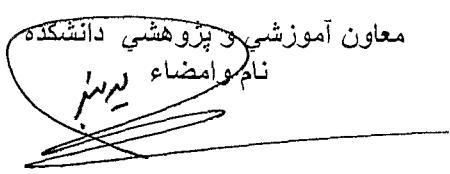 معاون آموزشي و پژوهشي دانشكده
نام وامضاء